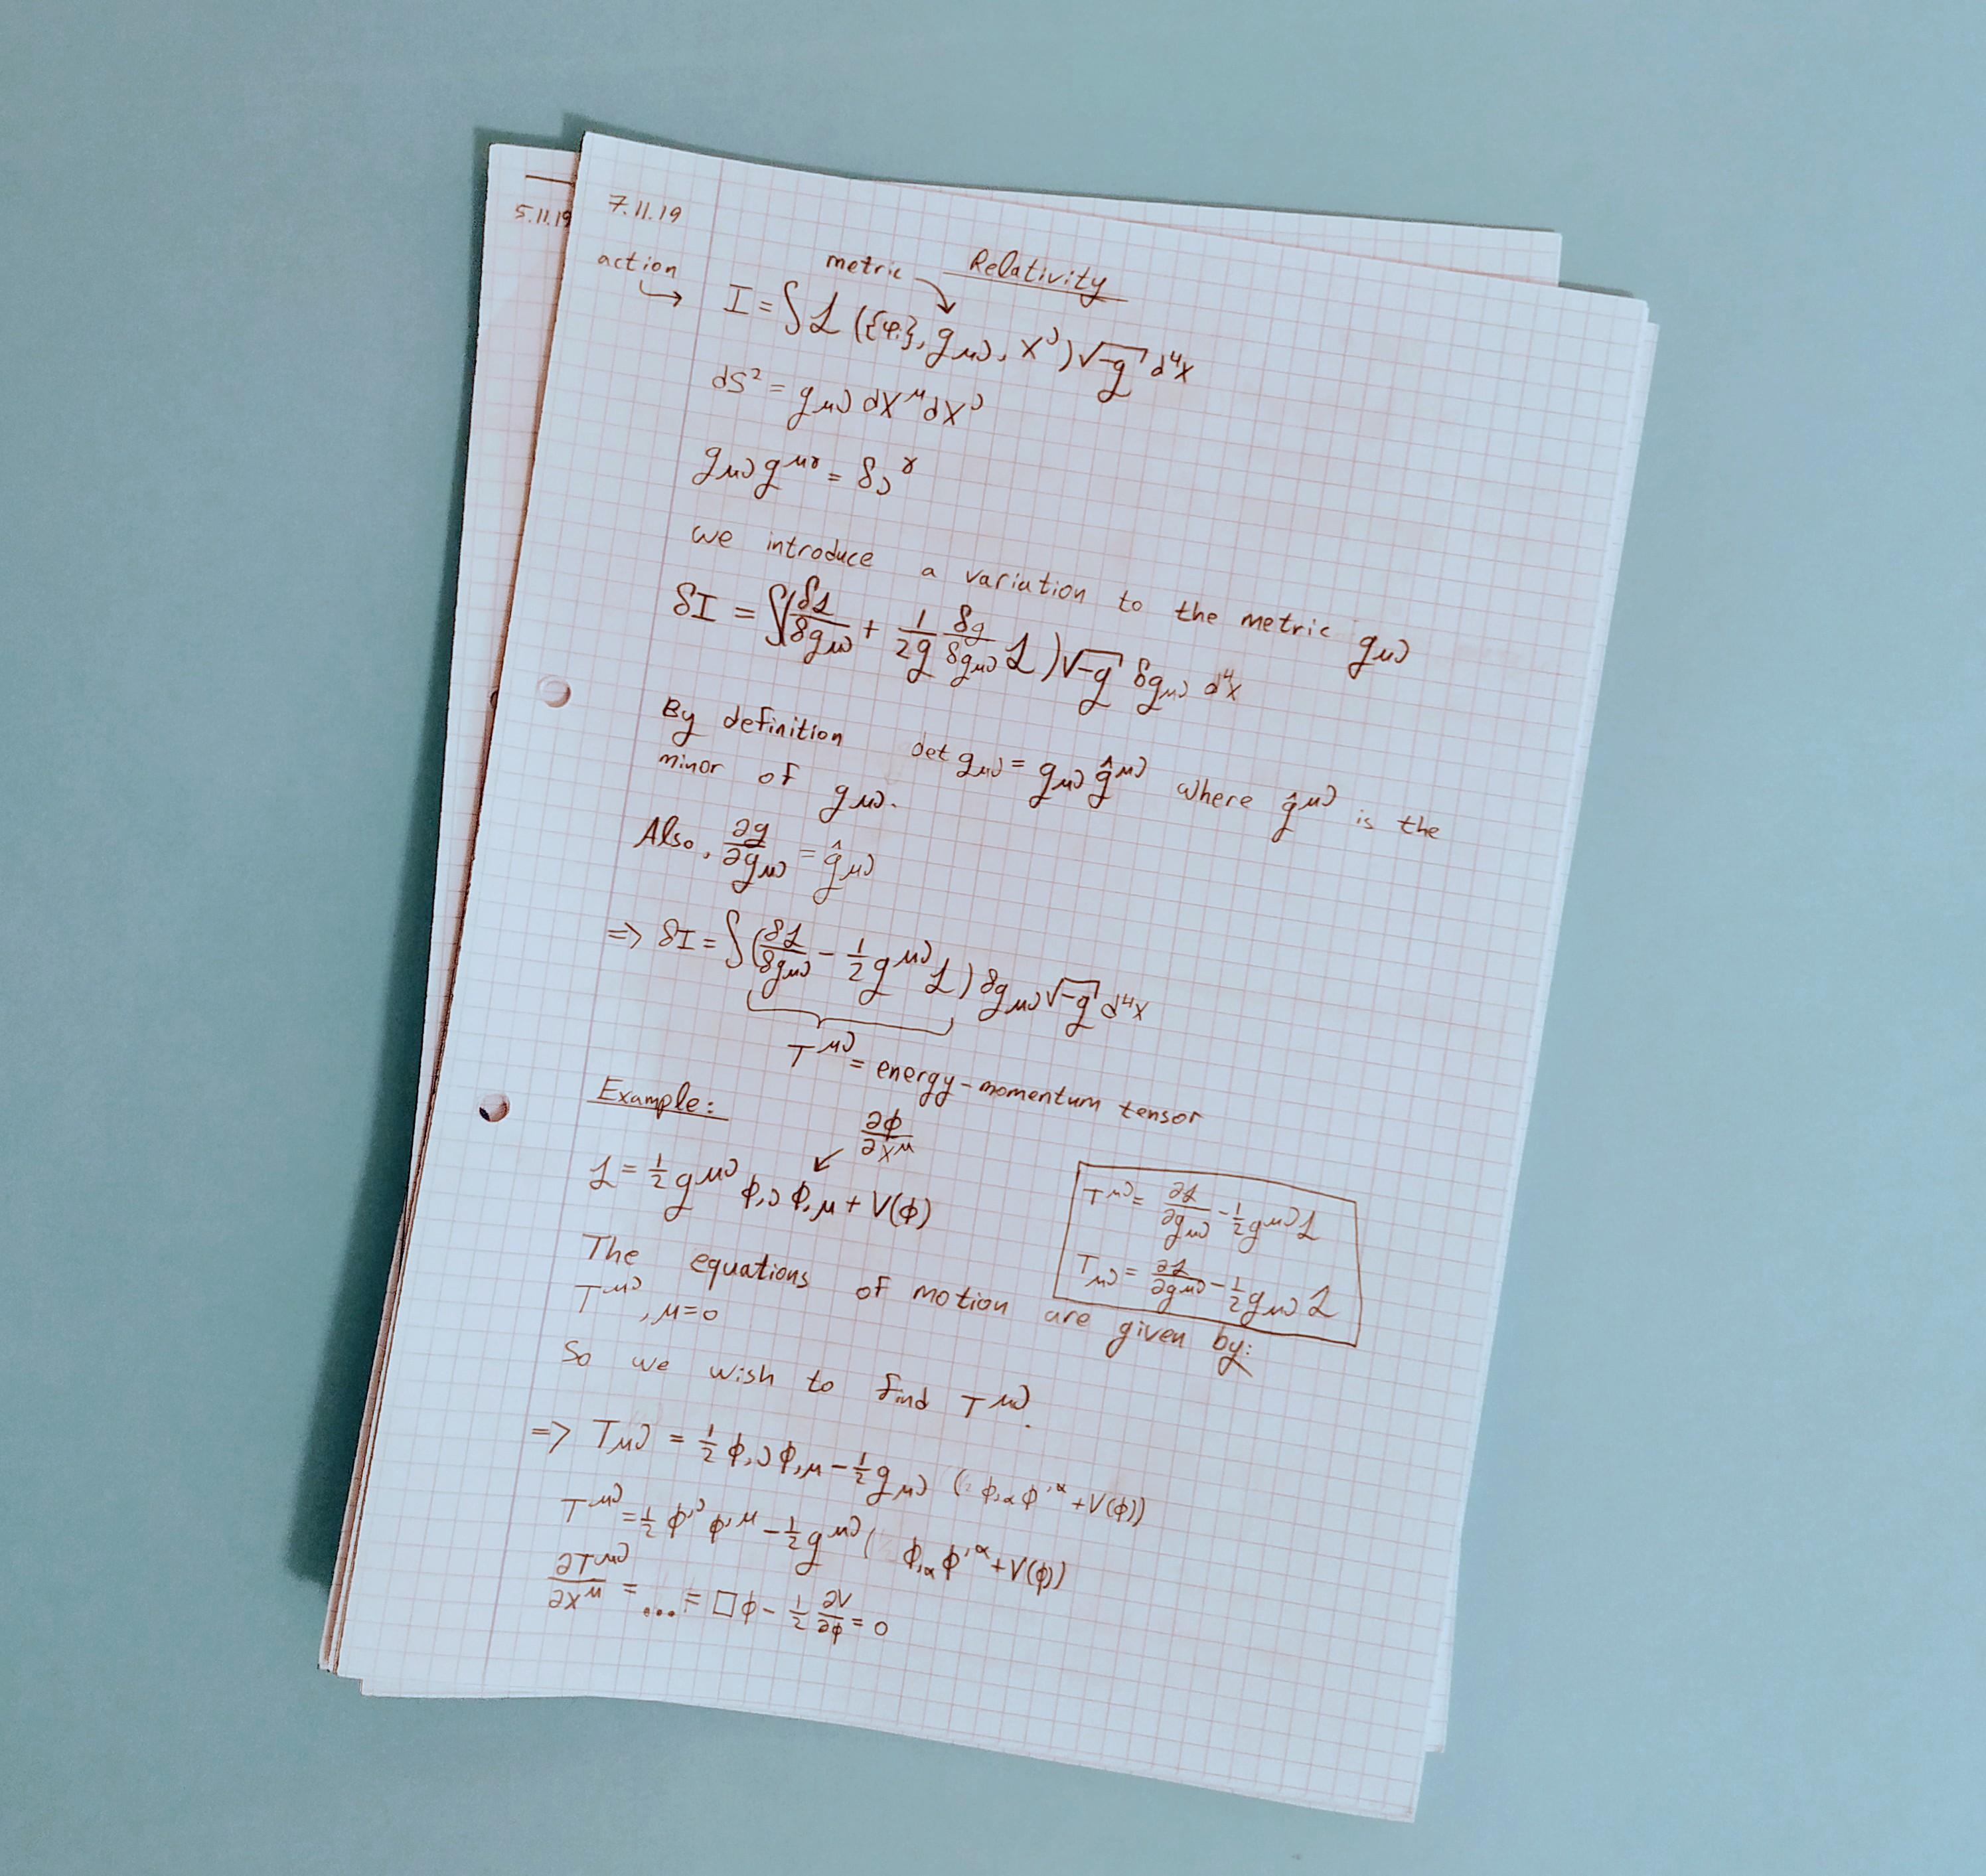 5.11.19
7.11.19
Relativity
action → metric
I = ∫ ℒ ({φᵢ}, g_μν, x^ν) √-g d⁴x
ds² = g_μν dx^μ dx^ν
g_μν g^μγ = δ_ν^γ
we introduce a variation to the metric g_μν
δI = ∫(δℒ/δg_μν + 1/2g δg/δg_μν ℒ) √-g δg_μν d⁴x
By definition det g_μν = g_μν ĝ^μν where ĝ^μν is the
minor of g_μν.
Also, ∂g/∂g_μν = ĝ_μν
=> δI = ∫(δℒ/δg_μν - 1/2 g^μν ℒ) δg_μν √-g d⁴x
T^μν = energy-momentum tensor
Example:
∂φ/∂x^μ
ℒ = 1/2 g^μν φ,ν φ,μ + V(φ)
T^μν = ∂ℒ/∂g_μν - 1/2 g^μν ℒ
T_μν = ∂ℒ/∂g^μν - 1/2 g_μν ℒ
The equations of motion are given by:
T^μν ,μ = 0
So we wish to find T^μν.
=> T_μν = 1/2 φ,ν φ,μ - 1/2 g_μν (φ,α φ^,α + V(φ))
T^μν = 1/2 φ^,ν φ^,μ - 1/2 g^μν (φ,α φ^,α + V(φ))
∂T^μν/∂x^μ = ... = □φ - 1/2 ∂V/∂φ = 0